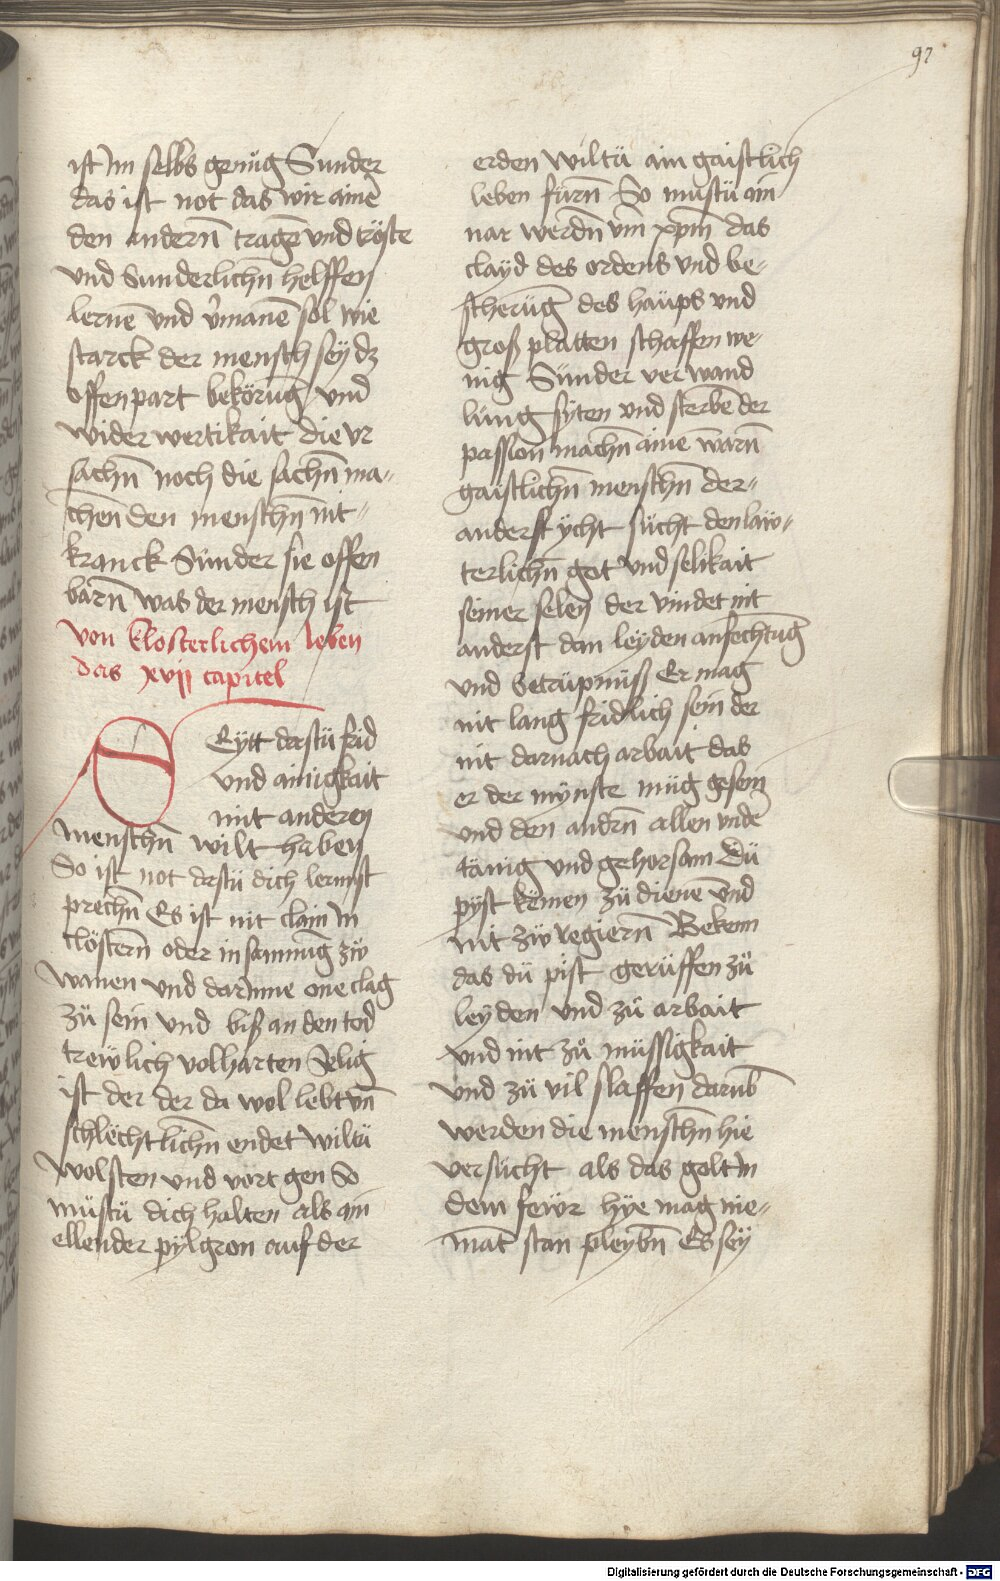 97
ist Im selbs genůg Sunder
das ist not das wir ainē
den andern̄ tragē vnd tröste
vnd Sunderlichn̄ helffen
lernē vnd v̄manē sol wie
starck der mensch sey dz
offenpart bekörūg vnd
wider wertikait die vr
sachn̄ noch die sachn̄ ma-
chen den menschn̄ nit
kranck Sunder sie offen
barn̄ was der mensch ist
von klosterlichem leben
das xvij capitel
Eytt dastü frid
vnd ainigkait
mit anderen
menschn̄ wilt haben
So ist not dastü dich lernnst
prechn̄ Es ist nit clain In
clöstern̄ oder in samnūg zw
wanen vnd darInne one clag
zü sein vnd biß an den tod
trewlich volharten Selig
ist der der da wol lebt vn̄
schlechtlichn̄ endet wiltü
wol sten vnd vort gen So
müstü dich halten als ain
ellender pylgron auf der
erden wiltü ain gaistlich
leben fürn̄ So mustü ain
nar werdn̄ vm̄ xp̄m das
clayd des ordens vnd be-
scherūg des haüps vnd
groß platten schaffen we-
nig Sünder ver wand
lüng syten vnd sterbē der
passion machn̄ aine warn̄
gaistlichn̄ menschn̄ der
anderst ycht sücht den law-
terlichn̄ got vnd selikait
seiner selen der vindet nit
anderst dan leyden anfechtūg
vnd betrüpnüß Er mag
nit lang fridlich sein der
nit darnach arbait das
er der mynste müg gesein
vnd den andrn̄ allen vnde
tänig vnd gehorsam Dü
pyst kömen zü dienē vnd
nit zw regiern̄ Bekenn
das dü pist gerüffen zů
leyden vnd zů arbait
vnd nit zů müssigkait
vnd zü vil slaffen darub̄
werden die menschn̄ hie
versücht als das golt In
dem fewr hye mag nie-
mat stan pleybn̄ Es sey
Digitalisierung gefördert durch die Deutsche Forschungsgemeinschaft - DFG